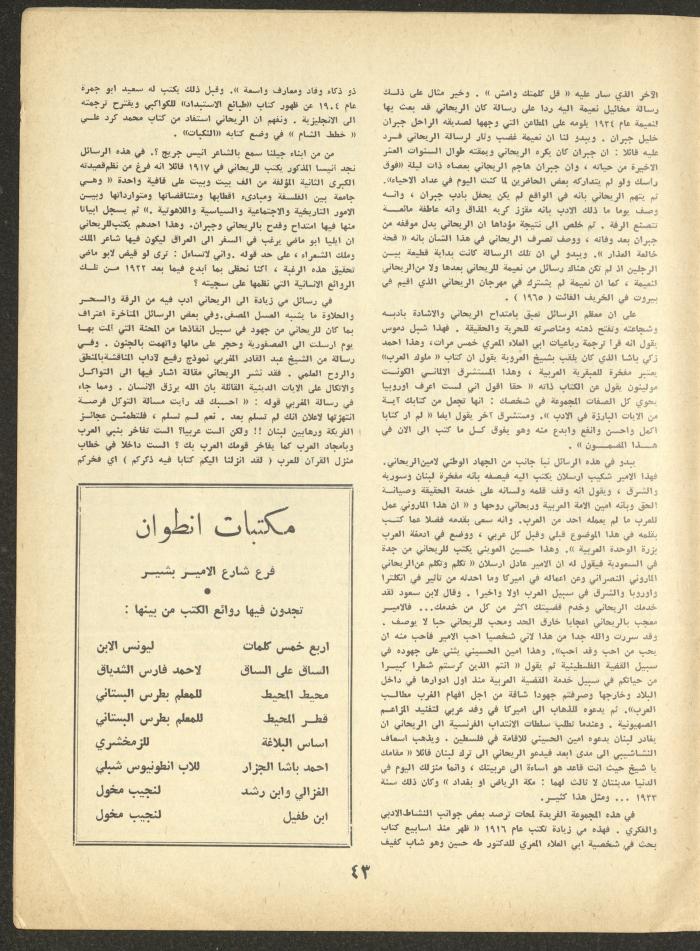 الاخر الذي سار عليه « قل كلمتك وامش » . وخير مثال على ذلك
رسالة مخائيل نعيمة اليه ردا على رسالة كان الريحاني قد بعث بها
لنعيمة عام ١٩٣٤ يلومه على المطاعن التي وجهها لصديقه الراحل جبران
خليل جبران . ويبدو لنا ان نعيمة غضب وثار لرسالة الريحاني فرد
عليه قائلا : ان جبران كان يكره الريحاني ويمقته طوال السنوات العشر
الاخيرة من حياته ، وان جبران هاجم الريحاني بعصاه ذات ليلة «فوق
رأسك ولو لم يتداركه بعض الحاضرين لما كنت اليوم في عداد الاحياء».
ثم يتهم الريحاني بانه في الواقع لم يكن يحفل بادب جبران ، وانه
وصف يوما ما ذلك الادب بانه مقزز كريه المذاق وانه عاطفة مائعة
تتصنع الرقة . ثم خلص الى نتيجة مؤداها ان الريحاني بدل موقفه من
جبران بعد وفاته ، ووصف تصرف الريحاني في هذا الشأن بانه « قحة
خالعة العذار » . ويبدو لي ان تلك الرسالة كانت بداية قطيعة بين
الرجلين اذ لم تكن هناك رسائل من نعيمة للريحاني بعدها ولا من الريحاني
لنعيمة ، كما ان نعيمة لم يشترك في مهرجان الريحاني الذي اقيم في
بيروت في الخريف الفائت ( ١٩٦٥ ) .
على ان معظم الرسائل تعبق بامتداح الريحاني والاشادة بادبه
وشجاعته وتفتح ذهنه ومناصرته للحرية والحقيقة . فهذا شبل دموس
يقول انه قرأ ترجمة رباعيات ابي العلاء المعري خمس مرات، وهذا احمد
زكي باشا الذي كان يلقب بشيخ العروبة يقول ان كتاب « ملوك العرب»
يعتبر مفخرة للعبقرية العربية ، وهذا المستشرق الالماني الكونت
مولينون يقول عن الكتاب ذاته « حقا اقول اني لست اعرف اوروبيا
يحوي كل الصفات المجموعة في شخصك : انها تجعل من كتابك آية
من الايات البارزة في الادب ». ومستشرق آخر يقول ايضا « لم ار كتابا
اكمل واحسن وانفع وابدع منه وهو يفوق كل ما كتب الى الان في
هذا المضمون » .
يبدو في هذه الرسائل نبأ جانب من الجهاد الوطني لامين الريحاني.
فهذا الامير شكيب ارسلان يكتب اليه فيصفه بانه مفخرة لبنان وسوريه
والشرق ، ويقول انه وقف قلمه ولسانه على خدمة الحقيقة وصيانة
الحق وبانه امين الامة العربية وريحاني روحها و « ان هذا الماروني عمل
للعرب ما لم يعمله احد من العرب. وانه سعى بقدمه فضلا عما كتب
بقلمه في هذا الموضوع قبلي وقبل كل عربي ، ووضع في ادمغة العرب
بزرة الوحدة العربية ». وهذا حسين العويني يكتب للريحاني من جدة
في السعودية فيقول له ان الامير عادل ارسلان « تكلم وتكلم عن الريحاني
الماروني النصراني وعن اعماله في اميركا وما احدثه من تأثير في انكلترا
واوروبا والشرق في سبيل العرب اولا واخيرا . وقال لابن سعود لقد
خدمك الريحاني وخدم قضيتك اكثر من كل من خدمك... فالامير
معجب بالريحاني اعجابا خارق الحد ومحب للريحاني حبا لا يوصف .
وقد سررت والله جدا من هذا لاني شخصيا احب الامير فأحب منه ان
يحب من احب وقد احب». وهذا امين الحسيني يثني على جهوده في
سبيل القضية الفلسطينية ثم يقول « انتم الذين كرستم شطرا كبيرا
من حياتكم في سبيل خدمة القضية العربية منذ اول ادوارها في داخل
البلاد وخارجها وصرفتم جهودا شاقة من اجل افهام الغرب مطالب
العرب». ثم يدعوه للذهاب الى اميركا في وفد عربي لتفنيد المزاعم
الصهيونية . وعندما تطلب سلطات الانتداب الفرنسية الى الريحاني ان
يغادر لبنان يدعوه امين الحسيني للاقامة في فلسطين . ويذهب اسعاف
النشاشيبي الى مدى ابعد فيدعو الريحاني الى ترك لبنان قائلا « مقامك
يا شيخ حيث انت قاعد هو اساءة الى عربيتك ، وانما منزلك اليوم في
الدنيا مدينتان لا ثالث لهما : مكة الرياض او بغداد » وكان ذلك سنة
١٩٣٣ ... ومثل هذا كثير.
في هذه المجموعة الفريدة لمحات ترصد بعض جوانب النشاط الادبي
والفكري . فهذه مي زيادة تكتب عام ١٩١٦ « ظهر منذ اسابيع كتاب
بحث في شخصية ابي العلاء المعري للدكتور طه حسين وهو شاب كفيف
ذو ذكاء وقاد ومعارف واسعة ». وقبل ذلك يكتب له سعيد ابو جمرة
عام ١٩٠٤ عن ظهور كتاب «طبائع الاستبداد» للكواكبي ويقترح ترجمته
الى الانجليزية . ونفهم ان الريحاني استفاد من كتاب محمد كرد علي
« خطط الشام » في وضع كتابه «النكبات» .
من من ابناء جيلنا سمع بالشاعر انيس جريج ؟. في هذه الرسائل
نجد انيسا المذكور يكتب للريحاني في ١٩١٧ قائلا انه فرغ من نظم قصيدته
الكبرى الثانية المؤلفة من الف بيت وبيت على قافية واحدة « وهي
جامعة بين الفلسفة ومبادىء اقطابها ومتناقضاتها ومتوارداتها وبين
الامور التاريخية والاجتماعية والسياسية واللاهوتية .» ثم يسجل ابياتا
منها فيها امتداح وقدح بالريحاني وجبران. وهذا احدهم يكتب للريحاني
ان ايليا ابو ماضي يرغب في السفر الى العراق ليكون فيها شاعر الملك
وملك الشعراء ، على حد قوله .واني لاتساءل : ترى لو قيض لابو ماضي
تحقيق هذه الرغبة ، اكنا نحظى بما ابدع فيما بعد ١٩٢٢ من تلك
الروائع الانسانية التي نظمها على سجيته ؟
في رسائل مي زيادة الى الريحاني ادب فيه من الرقة والسحر
والحلاوة ما يشبه العسل المصفى.وفي بعض الرسائل المتأخرة اعتراف
بما كان للريحاني من جهود في سبيل انقاذها من المحنة التي ألمت بها
يوم ارسلت الى العصفورية وحجر على مالها واتهمت بالجنون . وفي
رسالة من الشيخ عبد القادر المغربي نموذج رفيع لآداب المناقشة بالمنطق
والروح العلمي . فقد نشر الريحاني مقالة اشار فيها الى التواكل
والاتكال على الايات الدينية القائلة بان الله يرزق الانسان . ومما جاء
في رسالة المغربي قوله : « احسبك قد رأيت مسألة التوكل فرصة
انتهزتها لاعلان انك لم تسلم بعد . نعم لم تسلم ، فلتطمئن عجائز
الفريكة ورهابين لبنان !! ولكن ألست عربيا؟ الست تفاخر بنبي العرب
وبامجاد العرب كما يفاخر قومك العرب بك ؟ ألست داخلا في خطاب
منزل القرآن للعرب ( لقد انزلنا اليكم كتابا فيه ذكركم ) اي فخركم
مكتبات انطوان
فرع شارع الامير بشير
●
تجدون فيها روائع الكتب من بينها :
اربع خمس كلمات ليونس الابن
الساق على الساق لاحمد فارس الشدياق
محيط المحيط للمعلم بطرس البستاني
قطر المحيط للمعلم بطرس البستاني
اساس البلاغة للزمخشري
احمد باشا الجزار للاب انطونيوس شبلي
الغزالي وابن رشد لنجيب مخول
ابن طفيل لنجيب مخول
٤٣